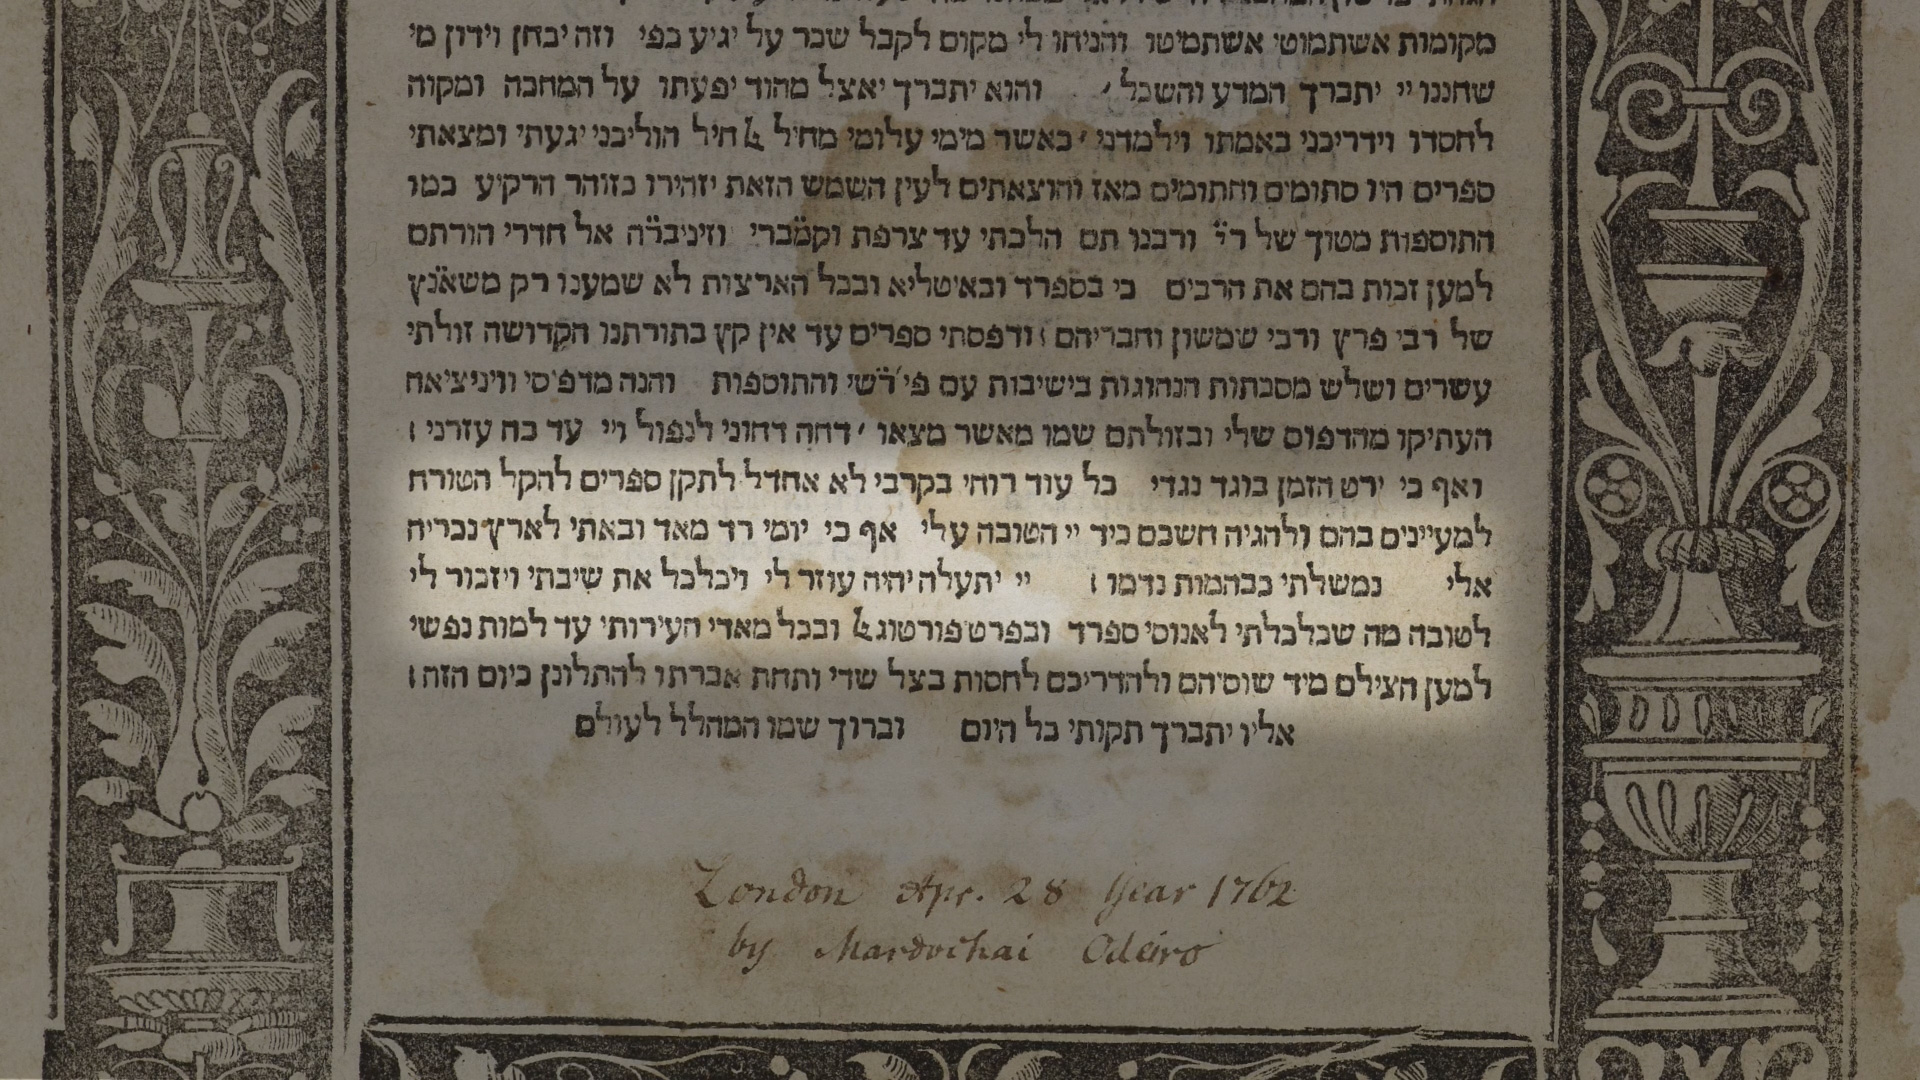 מקומות אשתמוטי אשתמיטו והניחו לי מקום לקבל שכר על יגיע כפי וזה יבחן וידון מי
שחננו יי יתברך המדע והשכל ׳ והוא יתברך יאצל מהוד יפעתו על המחכה ומקוה
לחסדו וידריכני באמתו וילמדני ׳ כאשר מימי עלומי מחיל ﭏ חיל הוליכני יגעתי ומצאתי
ספרים היו סתומים וחתומים מאז והוצאתים לעין השמש הזאת יזהירו כזוהר הרקיע כמו
התוספות מטוך של ר״י ורבנו תם הלכתי עד צרפת וקמברי וזיניברה אל חדרי הורתם
למען זכות בהם את הרבים כי בספרד ובאיטליא ובכל הארצות לא שמענו רק משאנץ
של רבי פרץ ורבי שמשון וחבריהם : ודפסתי ספרים עד אין קץ בתורתנו הקדושה זולתי
עשרים ושלש מסכתות הנהוגות בישיבות עם פי׳ רשי והתוספות והנה מדפיסי וויניציאה
העתיקו מהדפוס שלי ובזולתם שמו מאשר מצאו ׳ דחה דחוני לנפול ויי עד כה עזרני :
ואף כי ירט הזמן בוגד נגדי כל עוד רוחי בקרבי לא אחדל לתקן ספרים להקל הטורח
למעיינים בהם ולהגיה חשכם כיד יי הטובה עלי אף כי יומי רד מאד ובאתי לארץ נכריה
אלי נמשלתי כבהמות נדמו : יי יתעלה יהיה עוזר לי ויכלכל את שיבתי ויזכור לי
לטובה מה שכלכלתי לאנוסי ספרד ובפרט פורטוגﭏ ובכל מאדי העירותי עד למות נפשי
למען הצילם מיד שוסיהם ולהדריכם לחסות בצל שדי ותחת אברתו להתלונן כיום הזה :
אליו יתברך תקותי כל היום וברוך שמו המהלל לעולם
London Apr. 28 Year 1762
by Mardochai Odeiro